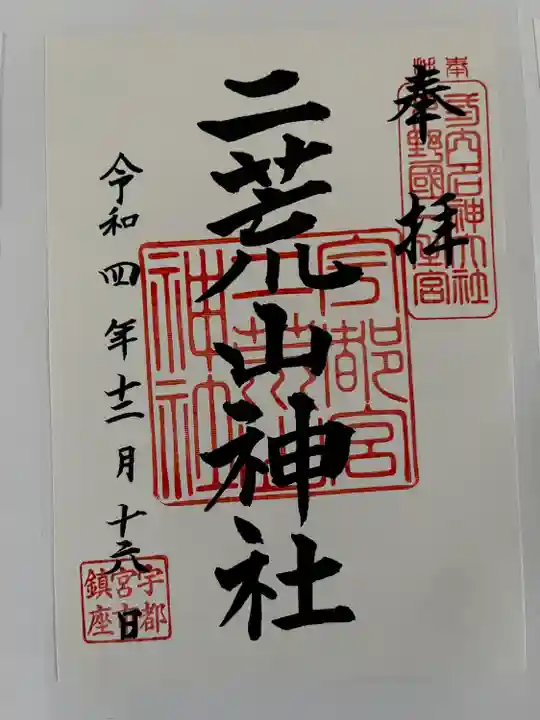 奉拝
二荒山神社
令和四年十二月十六日
奉
式内名神大社
下野國一之宮
宇都宮
二荒山
神社
宇都
宮市
鎮座